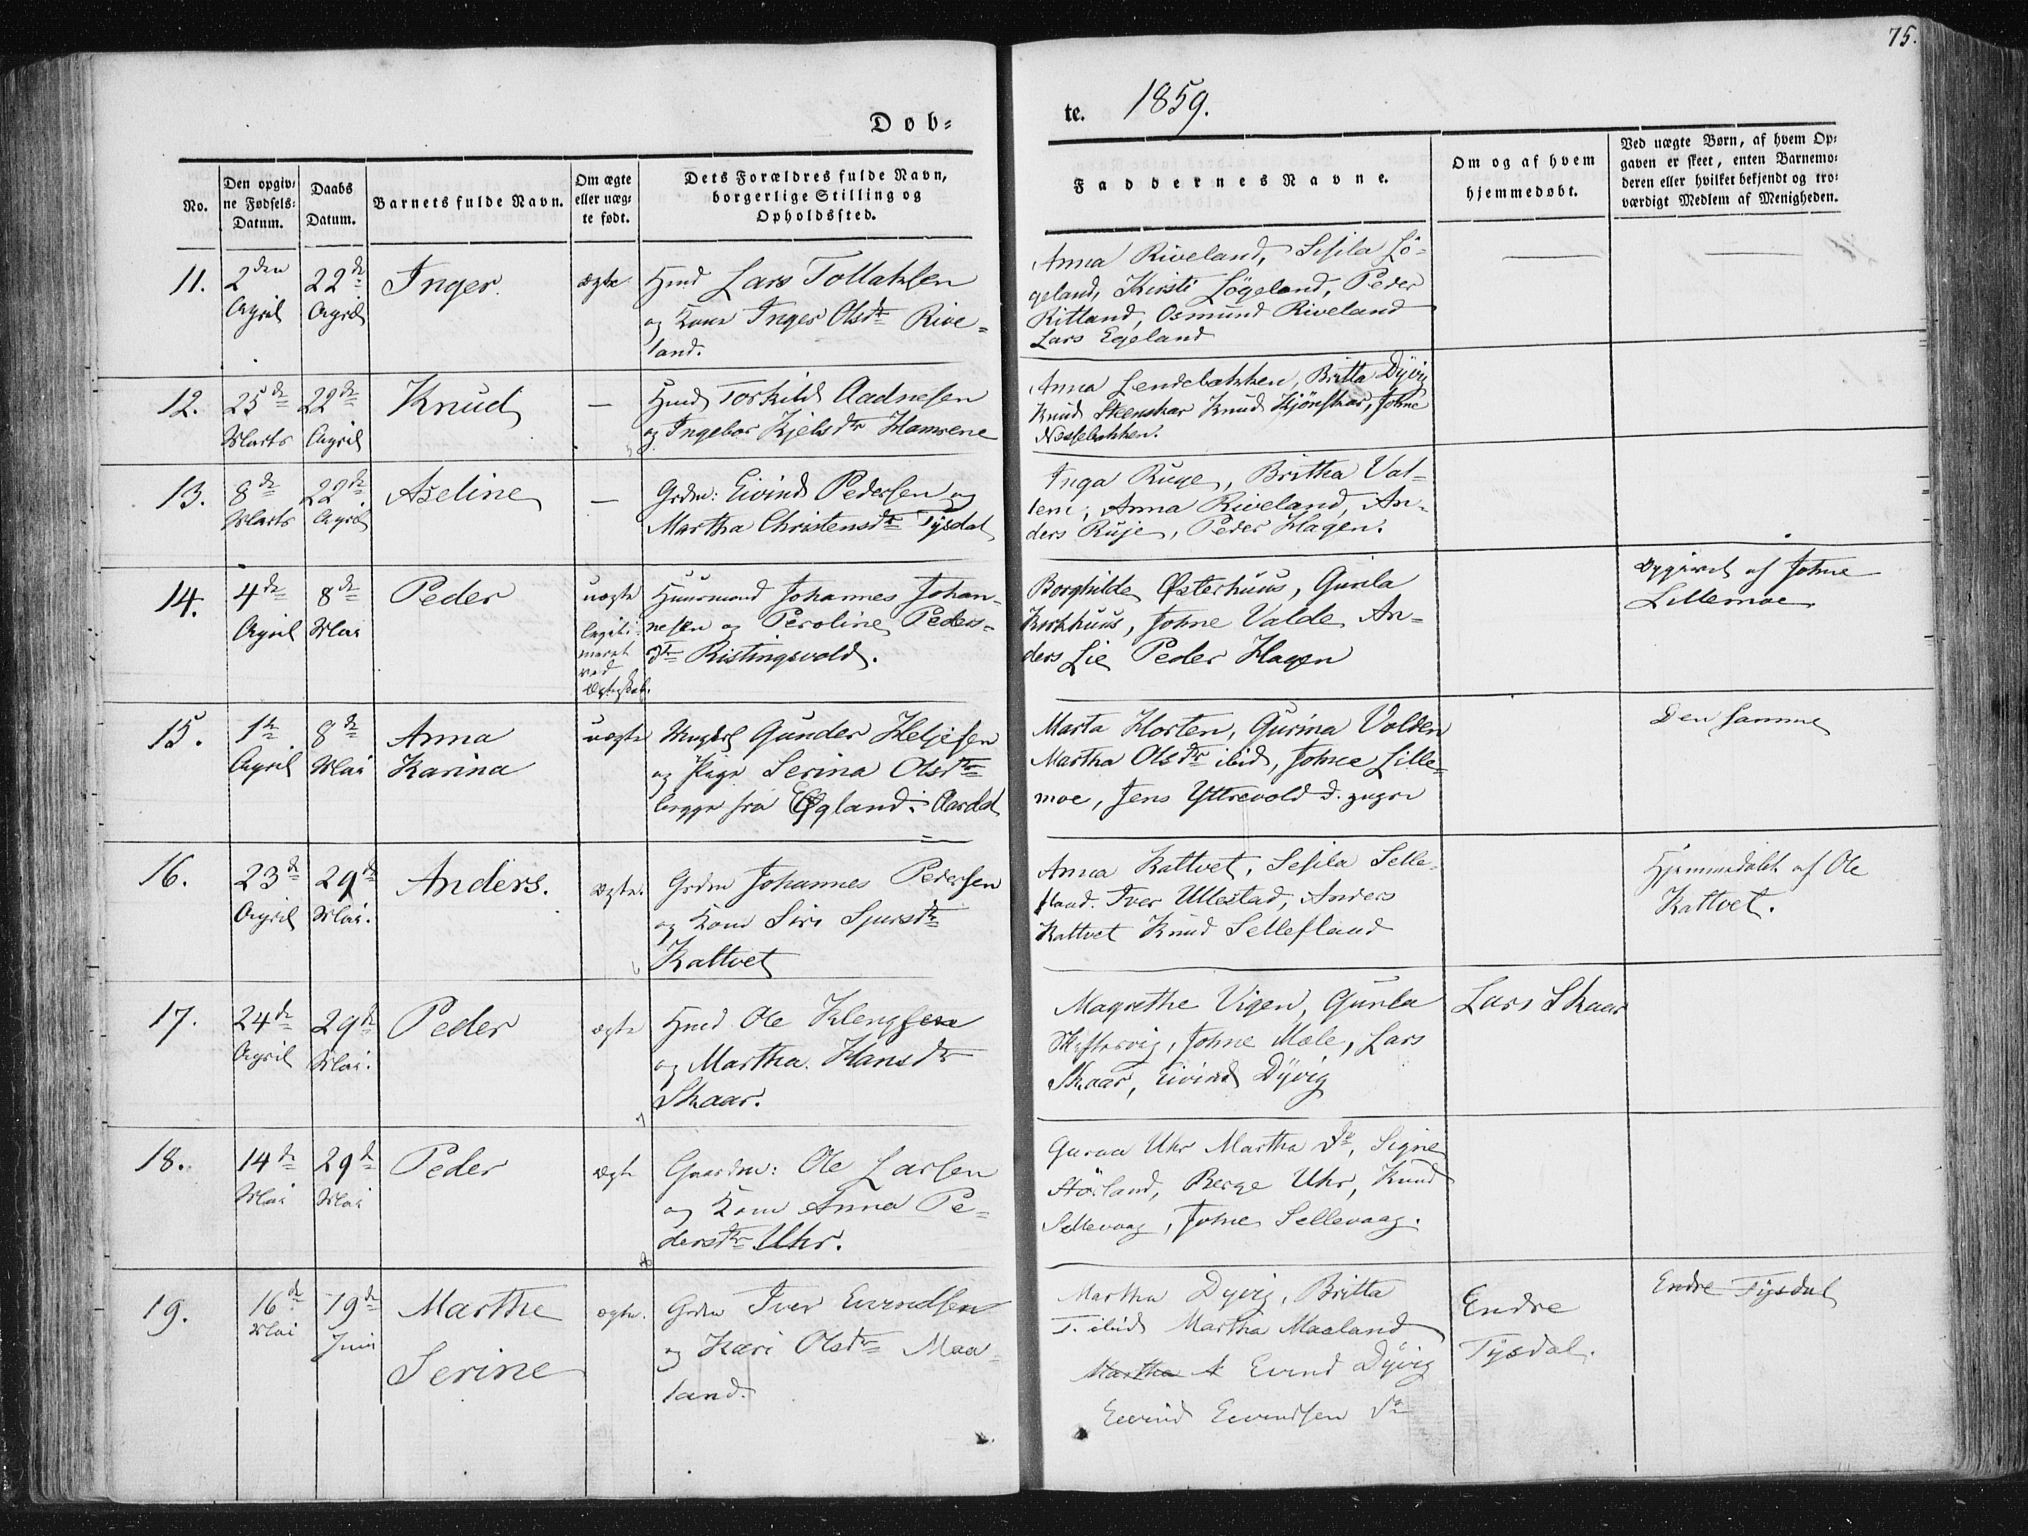 75.
Døb=
te. 1859.
No.
Den opgiv=
ne Fødsels=
Datum.
Daabs
Datum.
Barnets fulde Navn.
Om ægte
eller uæg=
te født.
Dets Forældres fulde Navn,
borgerlige Stilling og
Opholdssted.
Faddernes Navne.
Om og af hvem
hjemmedøbt.
Ved uægte Børn, af hvem Op=
gaven er skeet, enten Barnemo=
deren eller hvilket bekjendt og tro=
værdigt Medlem af Menigheden.
11.
2den
April
22de
April
Inger
ægte
Hmd Lars Tollaksen
og Kone Inger Olsdtr Rive=
land.
Anna Riveland, Sesila Lö=
geland, Kirsti Lögeland, Peder
Ritland, Osmund Riveland
Lars Egeland
12.
25de
Marts
22de
April
Knud
—
Hmd Torkild Aadnesen
og Ingebor Kjelsdtr Hamrene
Anna Lendebakken, Britta Dÿvig
Knud Steenskar Knud Kjönskar, Johne
Nessebakken.
13.
8de
Marts
22de
April
Aseline
—
Grdm: Eivind Pedersen og
Martha Christensdtr Tÿsdal
Inga Ruge, Britha Val=
lem, Anna Riveland, An=
ders Ruje, Peder Hagen.
14.
4de
April
8de
Mai
Peder
uægte
legiti=
meret
ved
Ægteskab.
Huusmand Johannes Johan=
nesen og Peroline Peders=
dtr Ristingsvold.
Borghilde Østerhuus, Gunla
Kirkhuus, Johne Valde An=
ders Lie Peder Hagen
Opgivet af Johne
Lillemoe
15.
1ste
April
8de
Mai
Anna
Karina
uægte
Ungkl Gunder Heljesen
og Pige Serina Olsdtr
begge fra Øgland i Aardal
Marta Horten, Gurina Volden
Martha Olsdtr ibid, Johne Lille=
moe, Jens Yttrevold d. yngre
Den samme
16.
23de
April
29de
Mai.
Anders.
ægte.
Grdm Johannes Pedersen
og Kone Siri Sjursdtr
Kaltvet
Anna Kaltvet, Sesila Selle=
fland. Iver Ullestad, Anders
Kaltvet Knud Sellefland
Hjemmedøbt af Ole
Kaltvet.
17.
24de
April
29de
Mai.
Peder
ægte
Hmd Ole Klengsen
og Martha Hansdtr
Skaar.
Magrethe Vigen, Gunla
Skiftesvig, Johne Mæle, Lars
Skaar, Eivind Dÿvig
Lars Skaar
18.
14de
Mai
29de
Mai
Peder
ægte
Gaardm: Ole Larsen
og Kone Anna Pe=
dersdtr Uhr.
Guroa Uhr Martha do, Signe
Störland, Berge Uhr, Knud
Sellevaag, Johne Sellevaag.
19.
16de
Mai
19de
Juni
Marthe
Serine
ægte.
Grdm Iver Eivindsen
og Kari Olsdtr Maa=
land.
Martha Dyvig, Britta
T. ibid Martha Maaland
Martha A Eivind Dÿvig
Eivind Eivindsen do
Endre
Tÿsdal.
Endre Tÿsdal